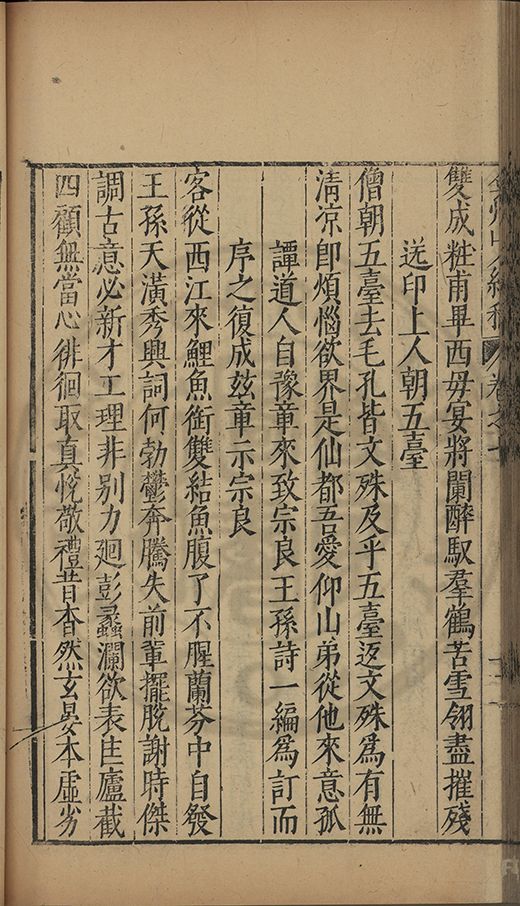 弇州山人續稿 卷之
雙成粧甫畢西母宴將闌醉馭羣鶴苦雪翎盡摧殘
送印上人朝五臺
僧朝五臺去毛孔皆文殊及乎五臺返文殊爲有無
清凉即煩惱欲界是仙都吾愛仰山弟從他來意孤
譚道人自豫章來致宗良王孫詩一編爲訂而
序之復成玆章示宗良
客從西江來鯉魚銜雙結魚腹了不腥蘭芬中自發
王孫天潢秀興詞何勃鬱奔騰失前輩擺脫謝時傑
調古意必新才工理非别力廻彭蠡瀾欲表匡廬截
四顧無當心徘徊取真恱敬禮昔杳然玄晏本虛劣